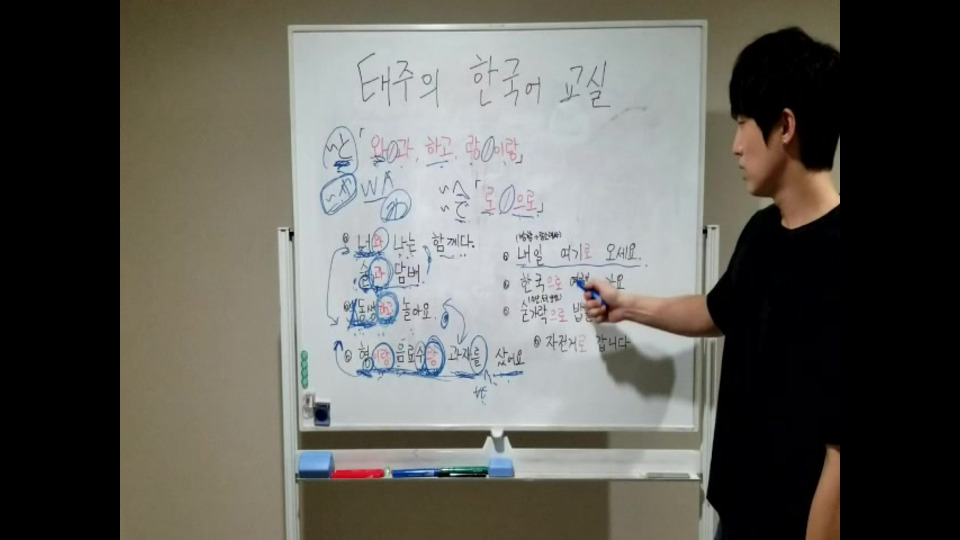 태주의 한국어 교실
「와/과, 하고, 랑/이랑」
「로/으로」
너와 나는 함께다.
술과 담배
동생하고 놀아요.
형이랑 음료수랑 과자를 샀어요
내일 여기로 오세요.
한국으로
숟가락으로
자전거로 갑니다